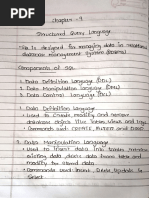 Chapter - 9
Structured Query Language
It is designed for managing data in relational
database management system (RDBMS)
Components of SQL
1. Data Definition Language (DDL)
2. Data Manipulation Language (DML)
3. Data Control Language (DCL)
1. Data Definition Language
Used to create, modify and remove
database object like tables, views and
Commands such CREATE, ALTER and DROP
2. Data Manipulation Language
Used to insert data into
existing data, delete data from table and
modify the stored data
Commands used Insert, Update to
Select